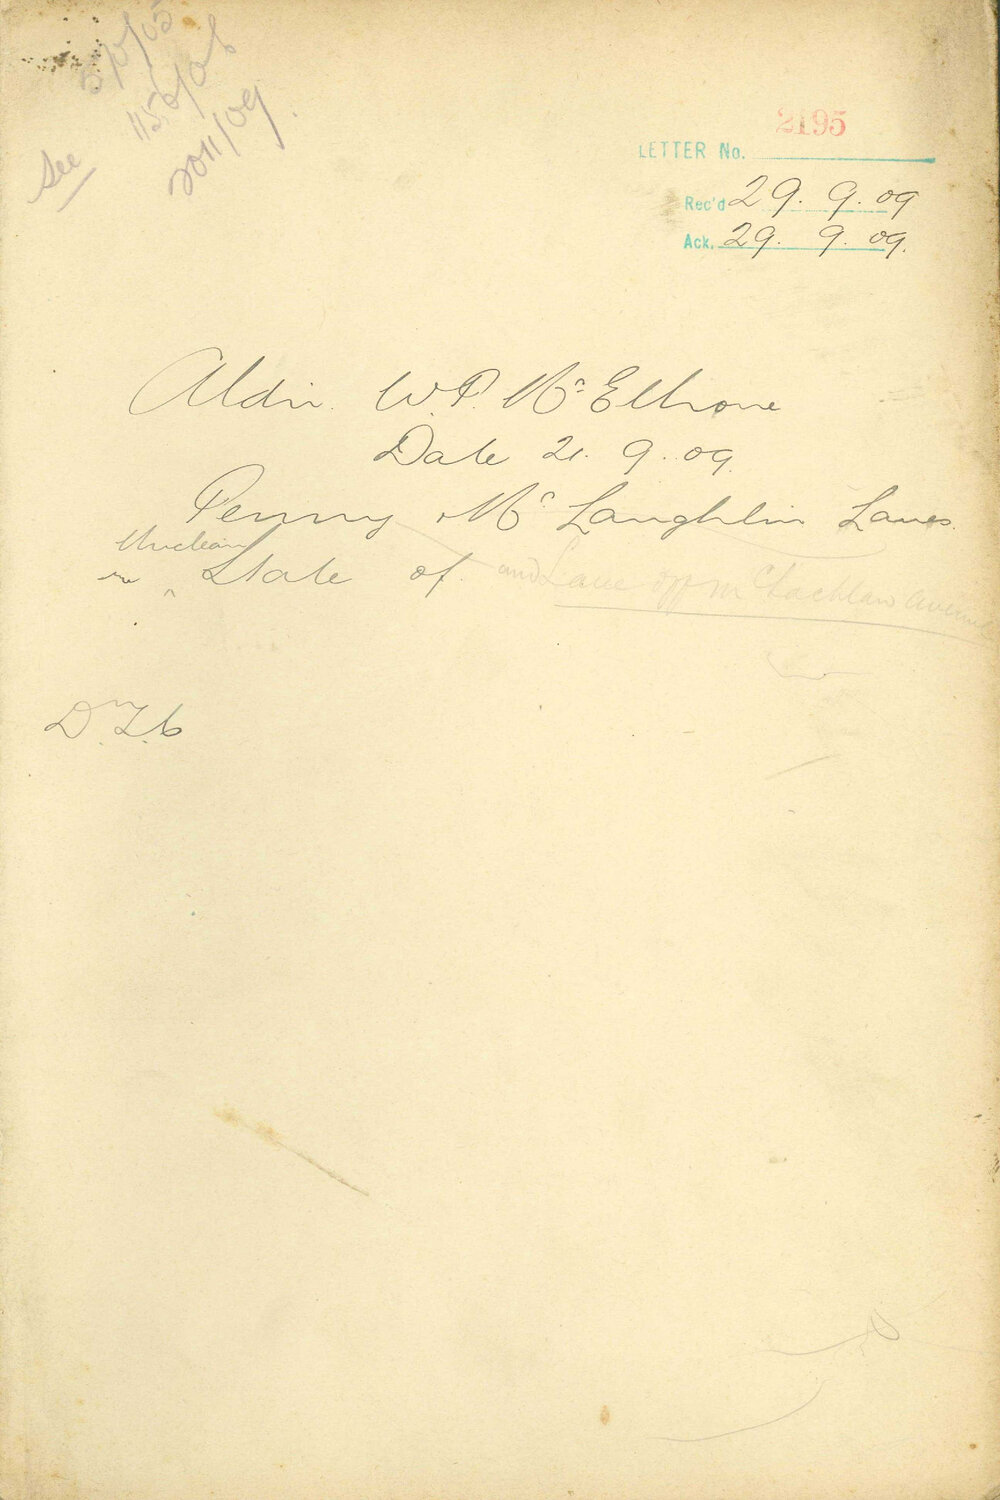 See
1152/06
2011/09
2195
LETTER No.
Rec'd 29. 9. 09
Ack. 29. 9. 09.
Aldn. W.P. McElhone
Date 21. 9. 09.
Penny McLaughlin Lanes.
Unclean
re State of and Lane off McLachlan Avenue